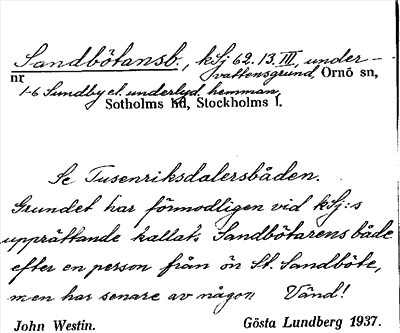 Sandbötansb., kSj 62.13.III, under-
nr vattensgrund, Ornö sn,
1-6 Sundby el. underlyd. hemman,
Sotholms hd, Stockholms l.
Se Tusenriksdalersbåden.
Grundet har förmodligen vid kSj:s
upprättande kallats Sandbötarens både
efter en person från ön St. Sandböte,
men har senare av någon Vänd!
John Westin. Gösta Lundberg 1937.